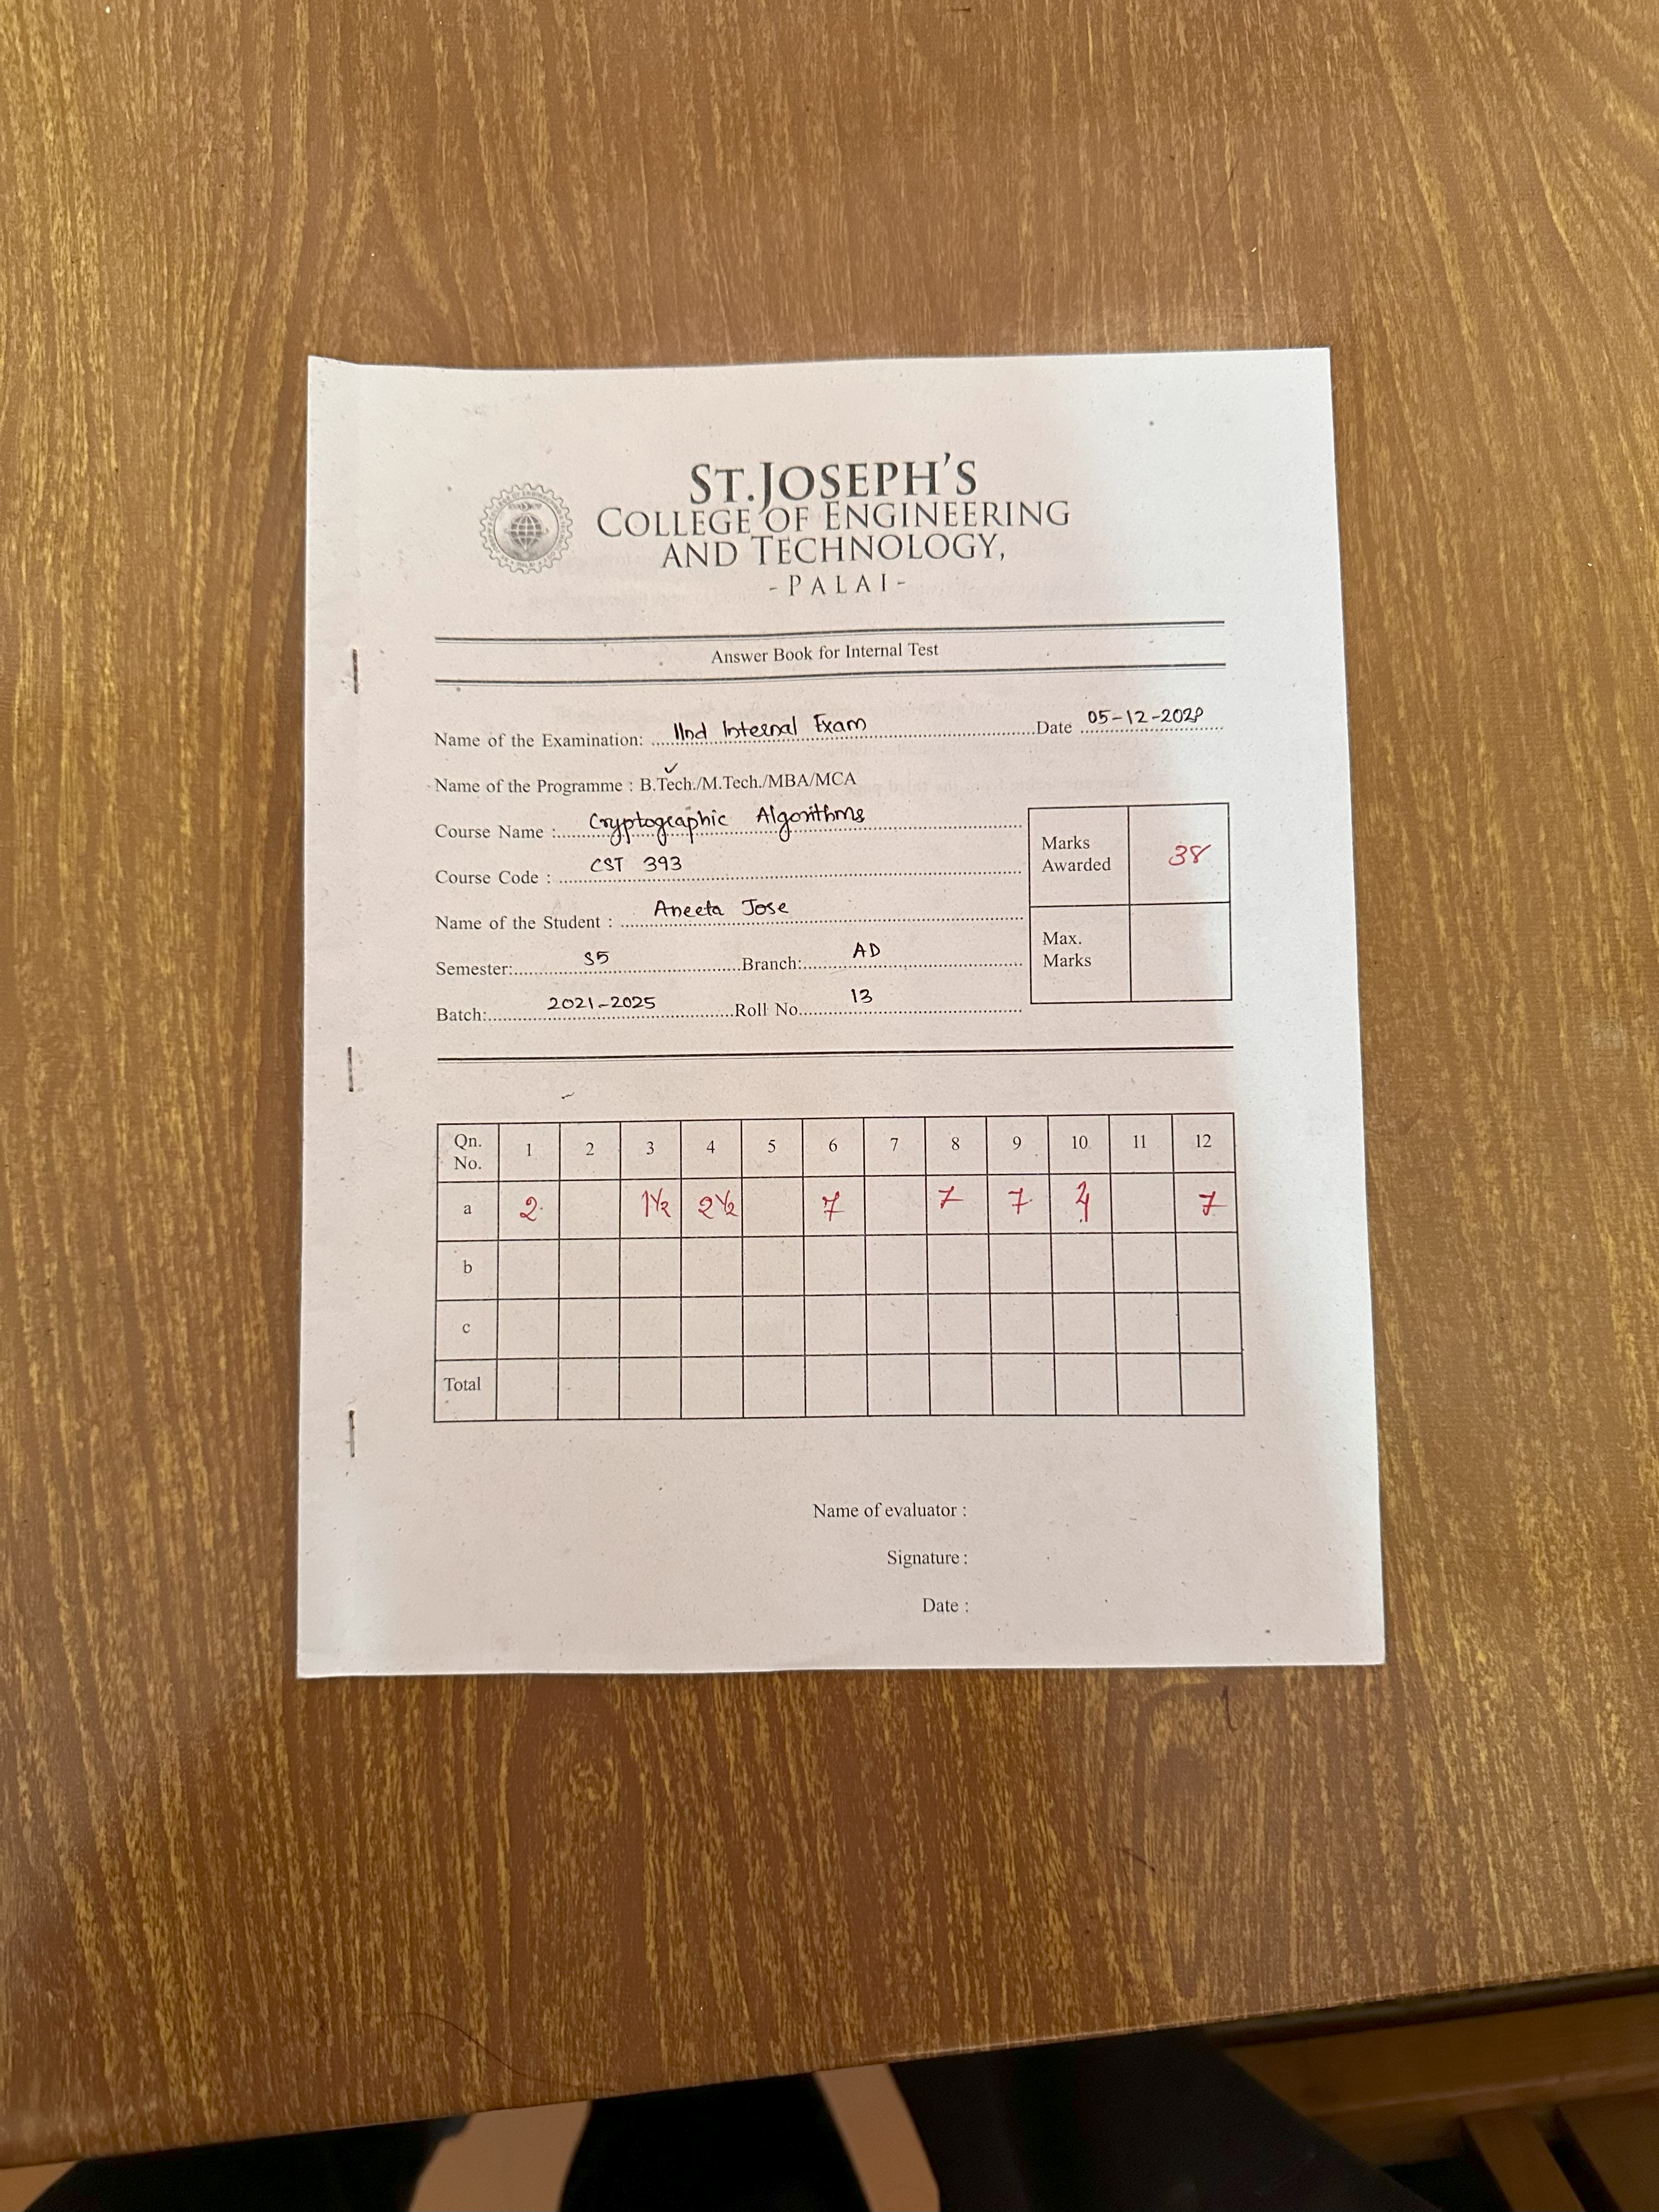 ST.JOSEPH'S
COLLEGE OF ENGINEERING
AND TECHNOLOGY,
- PALAI -
Answer Book for Internal Test
Name of the Examination: IInd Internal Exam Date 05-12-2023
Name of the Programme : B.Tech./M.Tech./MBA/MCA
Course Name : Cryptographic Algorithms
Course Code : CST 393
Name of the Student : Aneeta Jose
Semester: S5 Branch: AD
Batch: 2021-2025 Roll No. 13
Marks Awarded 38
Max. Marks
Qn. No. 1 2 3 4 5 6 7 8 9 10 11 12
a 2 1½ 2½ 7 7 7 4 7
b
c
Total
Name of evaluator :
Signature :
Date :